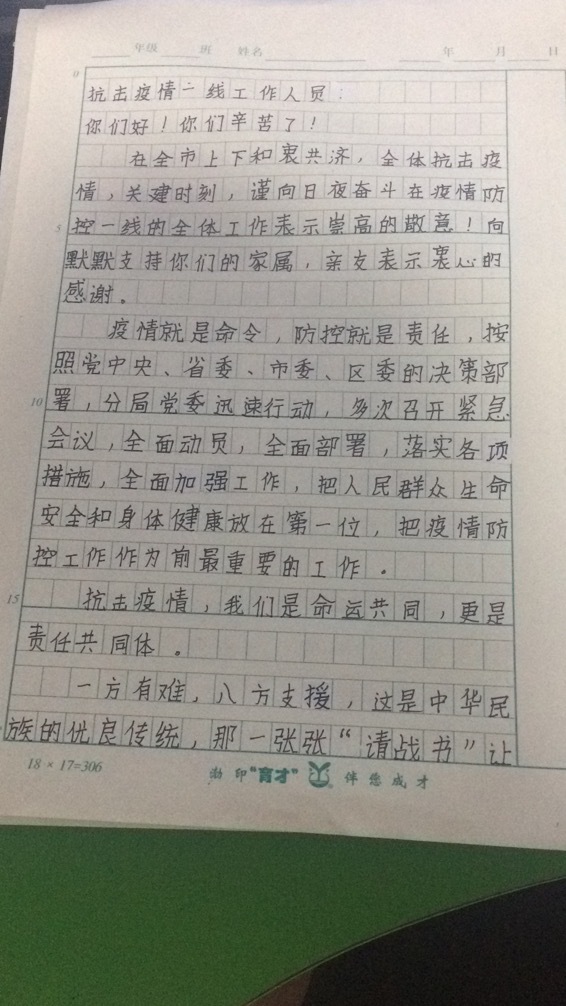 年级 班 姓名 年 月 日
0
抗击疫情一线工作人员：
你们好！你们辛苦了！
在全市上下和衷共济，全体抗击疫
情，关建时刻，谨向日夜奋斗在疫情防
5 控一线的全体工作表示崇高的敬意！向
默默支持你们的家属，亲友表示衷心的
感谢。
疫情就是命令，防控就是责任，按
照党中央、省委、市委、区委的决策部
10 署，分局党委迅速行动，多次召开紧急
会议，全面动员，全面部署，落实各项
措施，全面加强工作，把人民群众生命
安全和身体健康放在第一位，把疫情防
控工作作为前最重要的工作。
15 抗击疫情，我们是命运共同，更是
责任共同体。
一方有难，八方支援，这是中华民
族的优良传统，那一张张“请战书”让
18×17=306 渤印“育才” 伴您成才